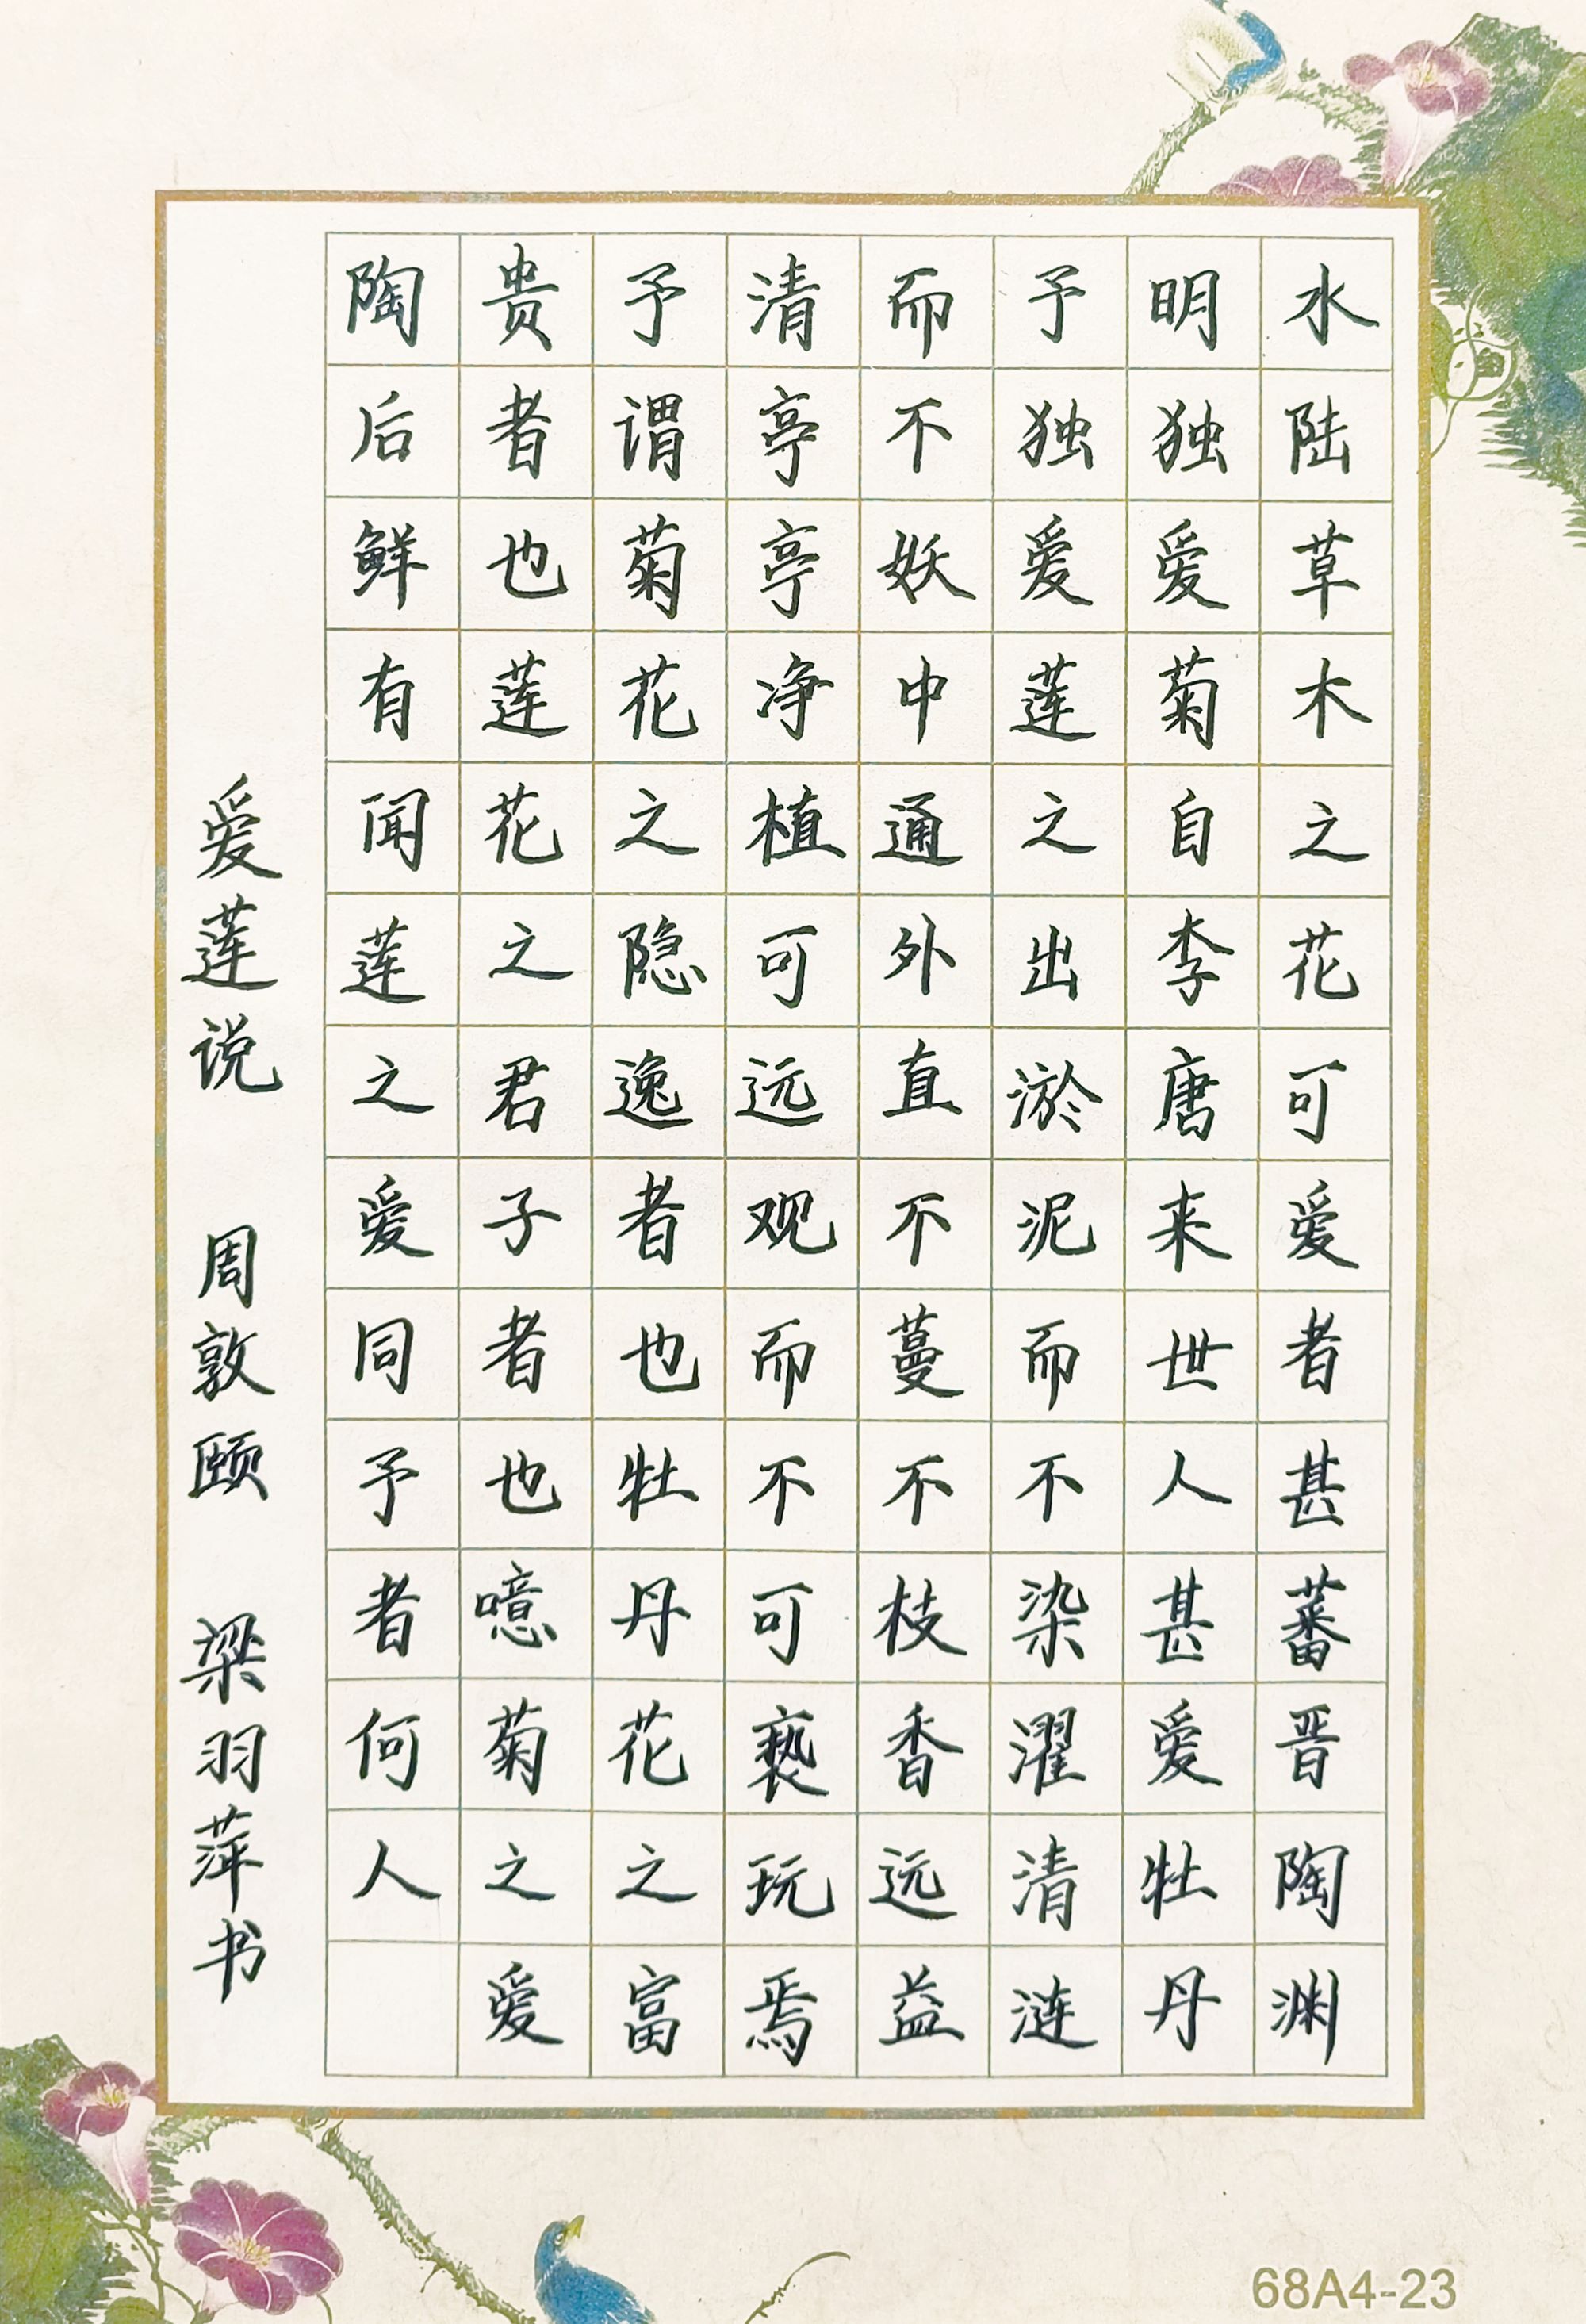 水陆草木之花可爱者甚蕃晋陶渊
明独爱菊自李唐来世人甚爱牡丹
予独爱莲之出淤泥而不染濯清涟
而不妖中通外直不蔓不枝香远益
清亭亭净植可远观而不可亵玩焉
予谓菊花之隐逸者也牡丹花之富
贵者也莲花之君子者也噫菊之爱
陶后鲜有闻莲之爱同予者何人
爱莲说 周敦颐 梁羽萍书
68A4-23